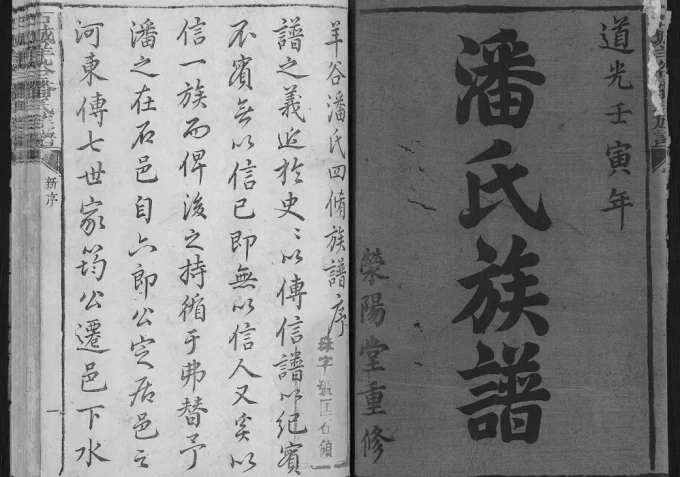 道光壬寅年
潘氏族譜
滎陽堂重修
羊谷潘氏四脩族譜序
譜之義近於史〻以傳信譜以紀實
不實無以信已即無以信人又奚以
信一族而俾後之持循于弗替予
潘之在石邑自六郎公定居邑之
河東傳七世家筠公遷邑下水
新序
一